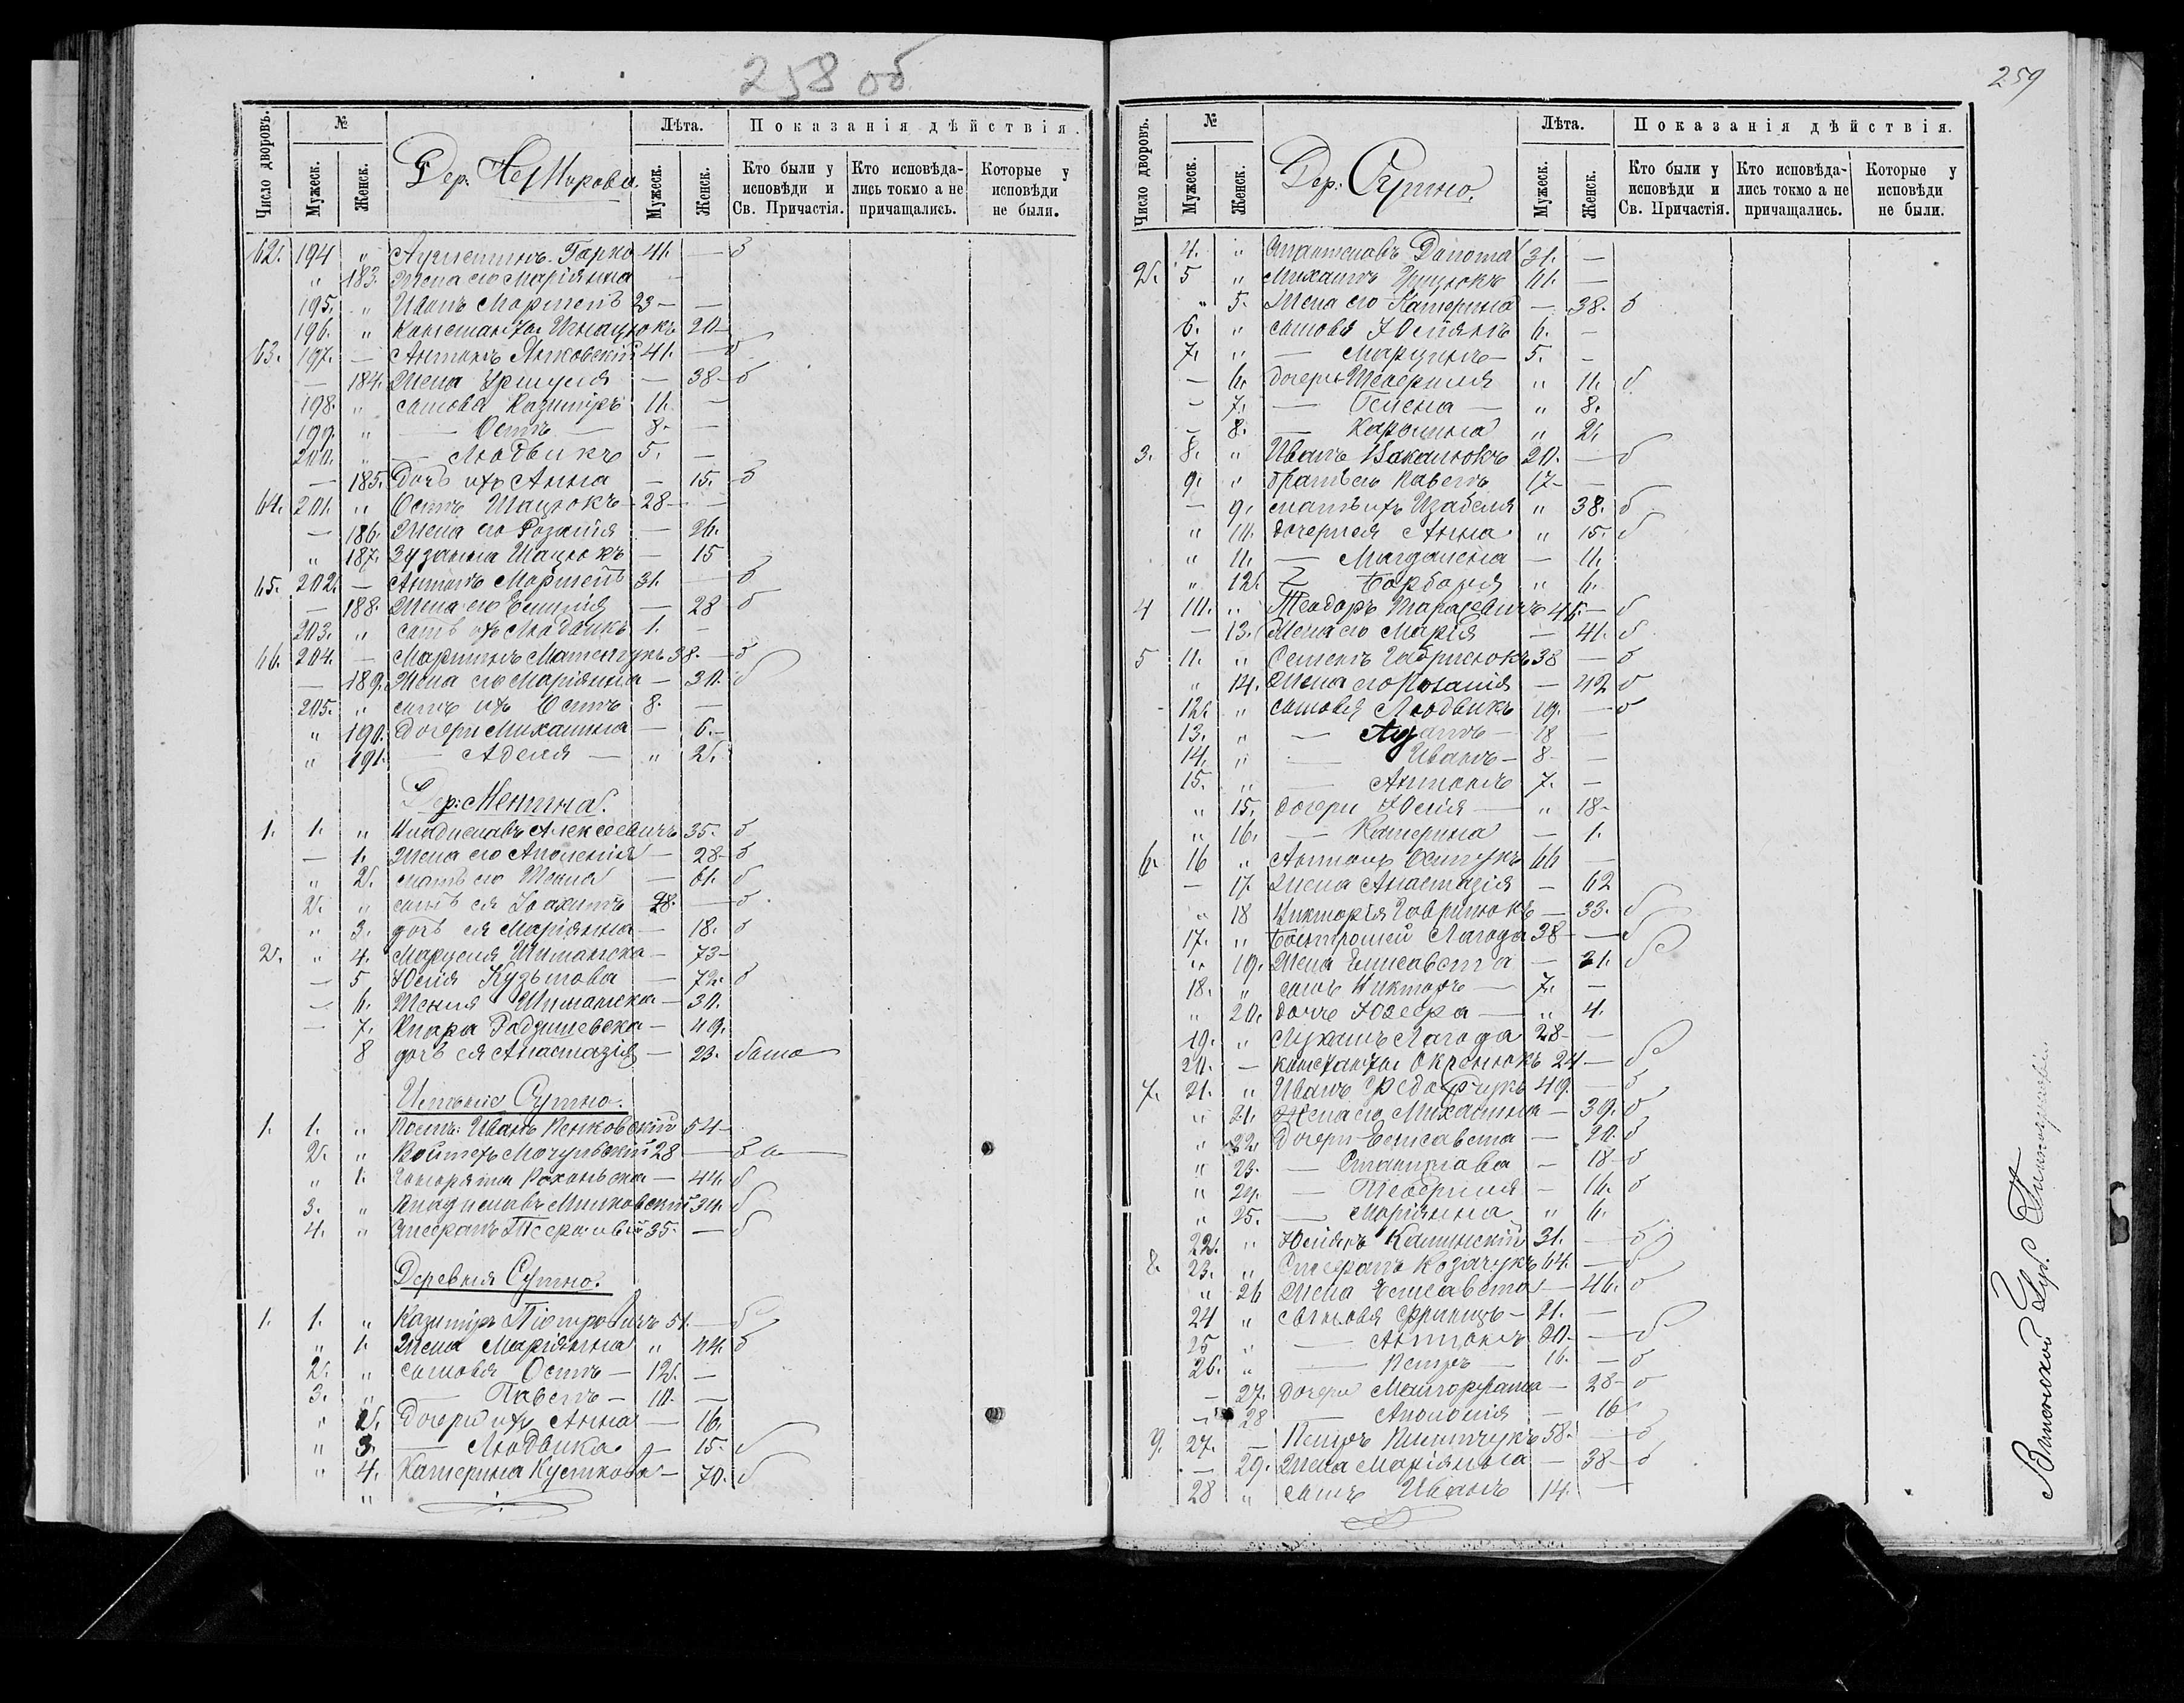 258 об
Число дворовъ. № Лѣта. Показанія дѣйствія.
Мужеск. Женск. Дер. Немирова. Мужеск. Женск. Кто были у исповѣди и Св. Причастія. Кто исповѣдались токмо а не причащались. Которые у исповѣди не были.
62. 194 " Августинъ Гарко 41. — б
" 183. Жена его Маріянна —
195. " Иванъ Мартеп 23 — —
196. " Константы Игнацюкъ 20 —
63. 197. — Антонъ Янковскій 41. — б
— 184. Жена Уршуля — 38 — б
198. " сыновья Казиміръ 11. —
199. " — Осипъ — 8. —
200. " — Людвикъ 5. —
— 185. Дочь ихъ Анна — 15. б
64. 201. " Осипъ Шацюкъ — 28 — —
— 186. Жена его Розалія — 26.
" 187. Зузанна Шацюкъ — 15
65. 202. — Антонъ 31. — б
— 188. Жена его Емилія — 28 б
203. " сынъ ихъ Людвикъ 1. —
66. 204. — Мартинъ 38. — б
— 189. Жена его Маріянна — 30. б
205. " сынъ ихъ Осипъ 8. —
" 190. Дочери Михалина — 6. —
" 191. — Аделя — " 2.
Дер: Ментна.
1. 1. " Владиславъ Алексеевичъ 35. б
— 1. Жена его Аполенія — 28 — б
" 2. мать его Текля — 61. б
2. " сынъ ея Іоахимъ 28. — б
" 3. дочь ея Маріянна — 18. б
2. " 4. Маруся Шиманска — 73 —
— 5 Юлія Кузьмова — 72. б
— 6. Шиманска — 30.
— 7. Клара Радзишевска — 49.
8 дочь ея Анастазія — 23. была
Имѣніе Сутно.
1. 1. " Иванъ Пенковскій 54 —
2. " Войтехъ Мочульскій 28 — б
" 1. — 44. б
3. " Владиславъ Милковскій 34. б
4. " Стефанъ 35. — б
Деревня Сутно.
1. 1. " Казиміръ Піотровичъ 51. — б
" 1. Жена Маріянна " 44. б
2. " сыновья Осипъ — 12. —
3. " — Павелъ — 10. —
" 2. Дочери ихъ Анна — 16.
" 3. — Людвика — 15. б
" 4. Катерина — 70. б
"
259
Число дворовъ. № Лѣта. Показанія дѣйствія.
Мужеск. Женск. Дер: Сутно. Мужеск. Женск. Кто были у исповѣди и Св. Причастія. Кто исповѣдались токмо а не причащались. Которые у исповѣди не были.
4. " Станиславъ Данота 31. —
2. 5 " Михаилъ Грицюкъ 41. —
" 5. Жена его Катерина — 38. б
6. " сыновья Юліянъ 6. —
7. " — Марцинъ — 5. —
— 6. дочери Северина " 11. б
— 7. — Гелена — " 8.
— 8. — Каролина " 2.
3. 8. " Иванъ Вакалюкъ 20. — б
9. " братъ его Павелъ 17 — —
— 9. мать ихъ Изабеля " 38. б
" 10. дочерия Анна " 15. б
" 11. — Магдалена — 11.
" 12. — Барбара " 6.
4 10. " Теодоръ Тарасевичъ 45 — б
— 13. Жена его Марія — 41. б
5 11. " Семенъ Габрилюкъ 38 — б
" 14. Жена его Розалія — 42 б
12. " сыновья Людвикъ 19. — б
13. " — Адамъ — 18 —
14. " — Иванъ — 8 — —
15. " — Антонъ 7. —
" 15. дочери Юлія — " 18 —
" 16. — Катерина — 1.
6. 16 " Антонъ Осипукъ 66 —
— 17. Жена Анастазія — 62
" 18 Викторія Гаврилюкъ — 33. б
17. " Лагода 38 — — б
" 19. Жена Елисавета — 31. б
18. " сынъ Викторъ — 7. —
" 20. дочь Юзефа — " 4.
19. " Лукашъ Лагода 28 — —
20. — Константы 24 — б
7. 21. " Иванъ Федорчукъ 49. — б
" 21. Жена его Михалина — 39. б
" 22. Дочери Елисавета — 20. б
" 23. — Станислава — 18 — б
" 24. — Северина — 16. б
" 25. — Маріянна " 6.
22. " Юліянъ Калинскій 31. — б
8. 23. " Стефанъ Козачукъ 64. — б
" 26 Жена Елисавета — 46. б
24 " сыновья Францъ — 21. —
25 " — Антонъ 20. — б
26. " — Петръ — 16. — б
— 27. дочери Малгоржата — 28 — б
— 28 — Аполонія — 16
9. 27. — Петръ Климчукъ 58. — б
— 29. Жена Маріянна — 38 — б
28 " сынъ Иванъ 14. —